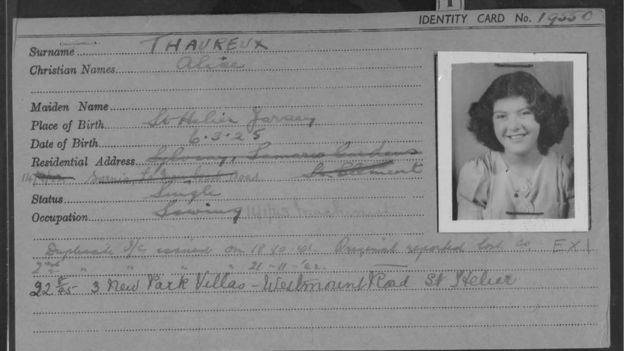 IDENTITY CARD No. 19550
Surname THAUREUX
Christian Names Alice
Maiden Name
Place of Birth St Helier Jersey
Date of Birth 6.3.25
Residential Address Samares Gardens
St Clement
Status Single
Occupation Sewing
Duplicate I/C issued on 18.10. Original reported lost
2nd " " " " 21-11-42.
3 New Park Villas - Westmount Road St Helier